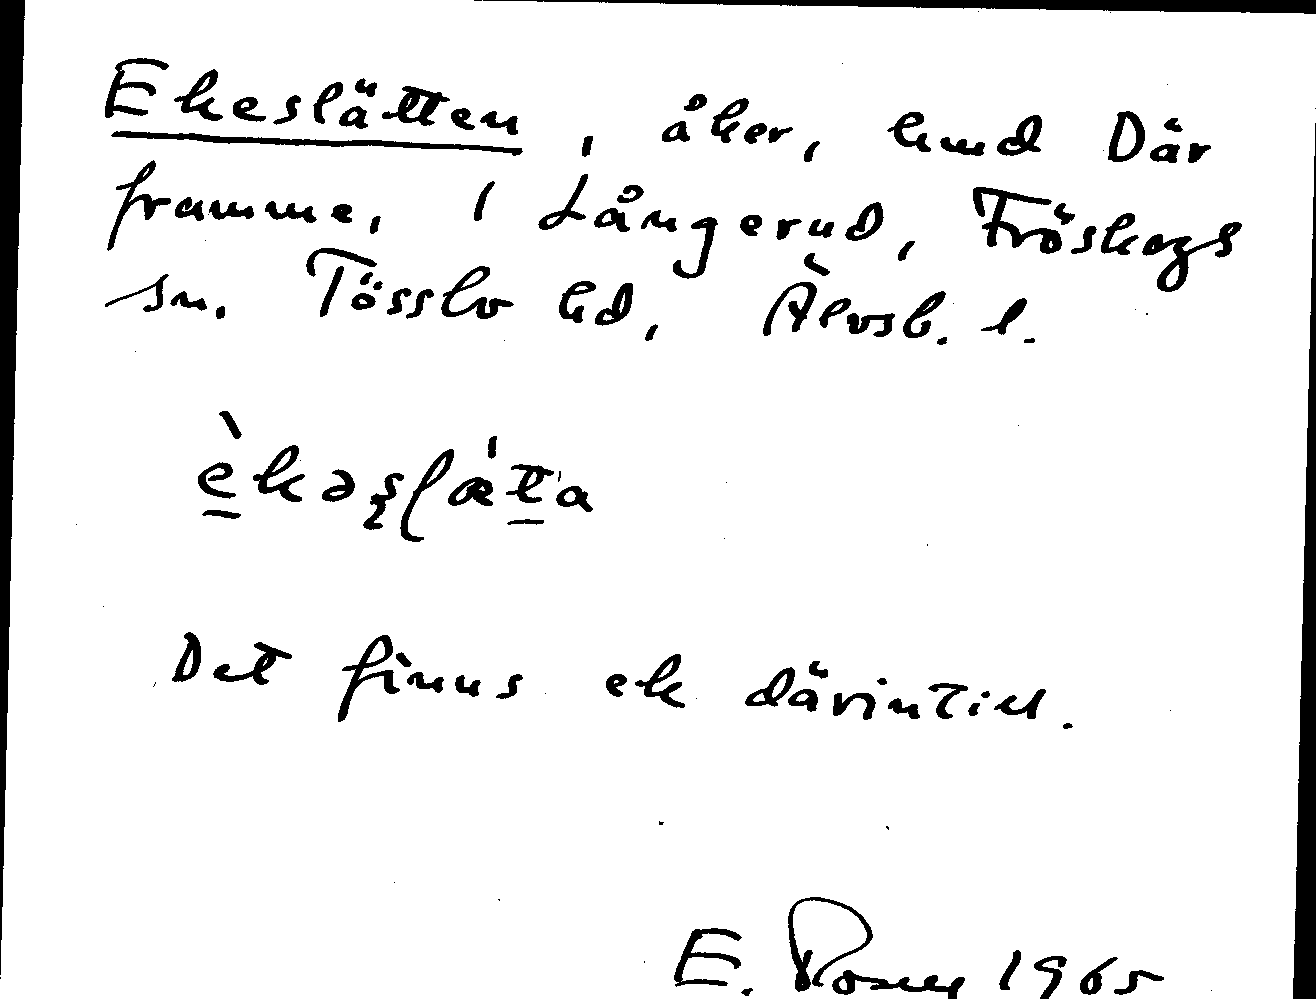 Ekeslätten, åker, hmd Där
framme, 1 Långerud, Fröskogs
sn. Tössbo hd, Älvsb. l.
èkəşlǽta
Det finns ek därintill.
E. 1965